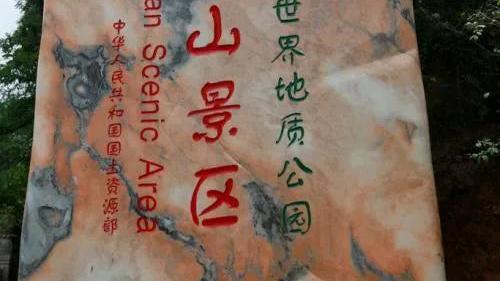 世界地质公园
山景区
an Scenic Area
中华人民共和国国土资源部